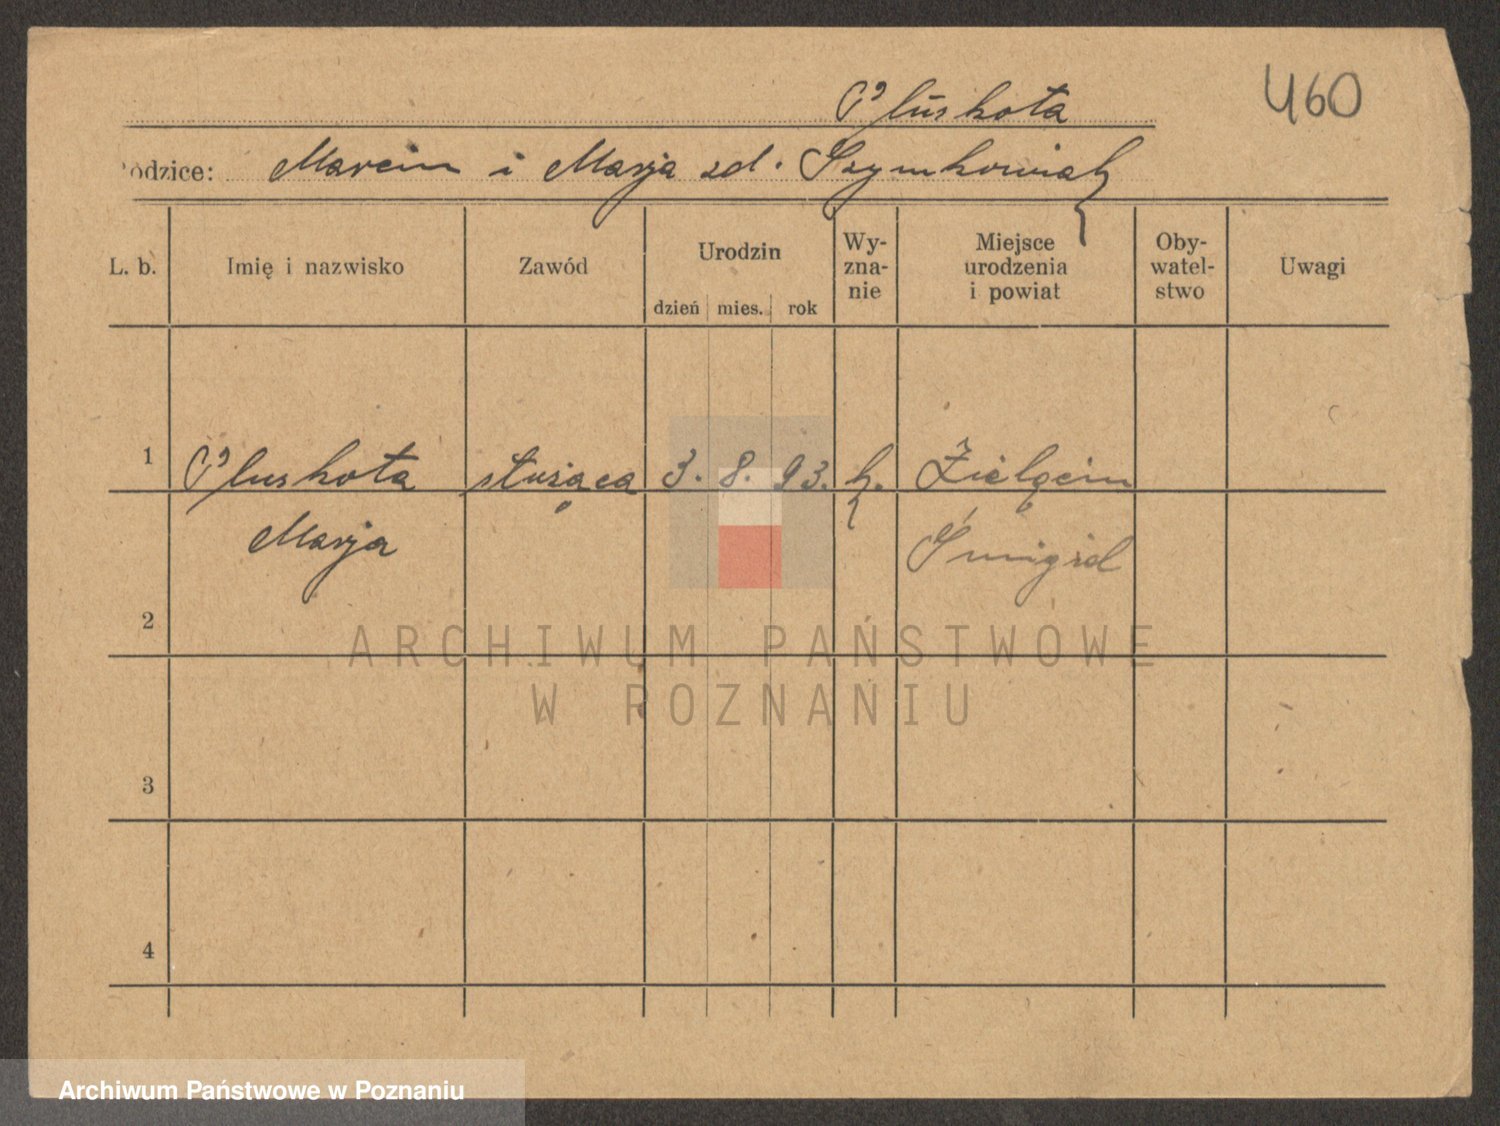 460
Pluskota
Rodzice: Marcin i Marja zd. Szymkowiak
L. b. Imię i nazwisko Zawód Urodzin dzień mies. rok Wy-zna-nie Miejsce urodzenia i powiat Oby-watel-stwo Uwagi
1 Pluskota służąca 3. 8. 93. k. Żielęcin
Marja Śmigiel
2
ARCHIWUM PAŃSTWOWE
W POZNANIU
3
4
Archiwum Państwowe w Poznaniu